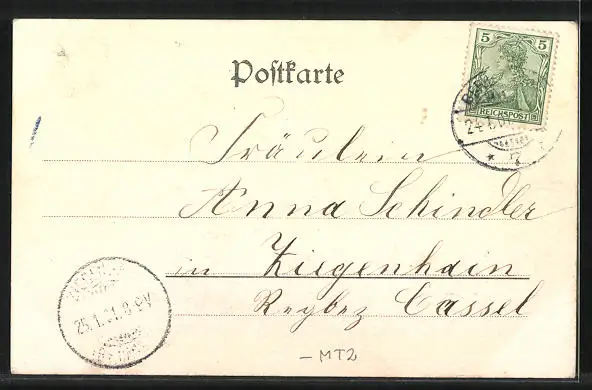 Postkarte
5 5
REICHSPOST
24.1.01
Fräulein
Anna Schindler
in Ziegenhain
Regbez Cassel
25.1.01.8-9V
MT2